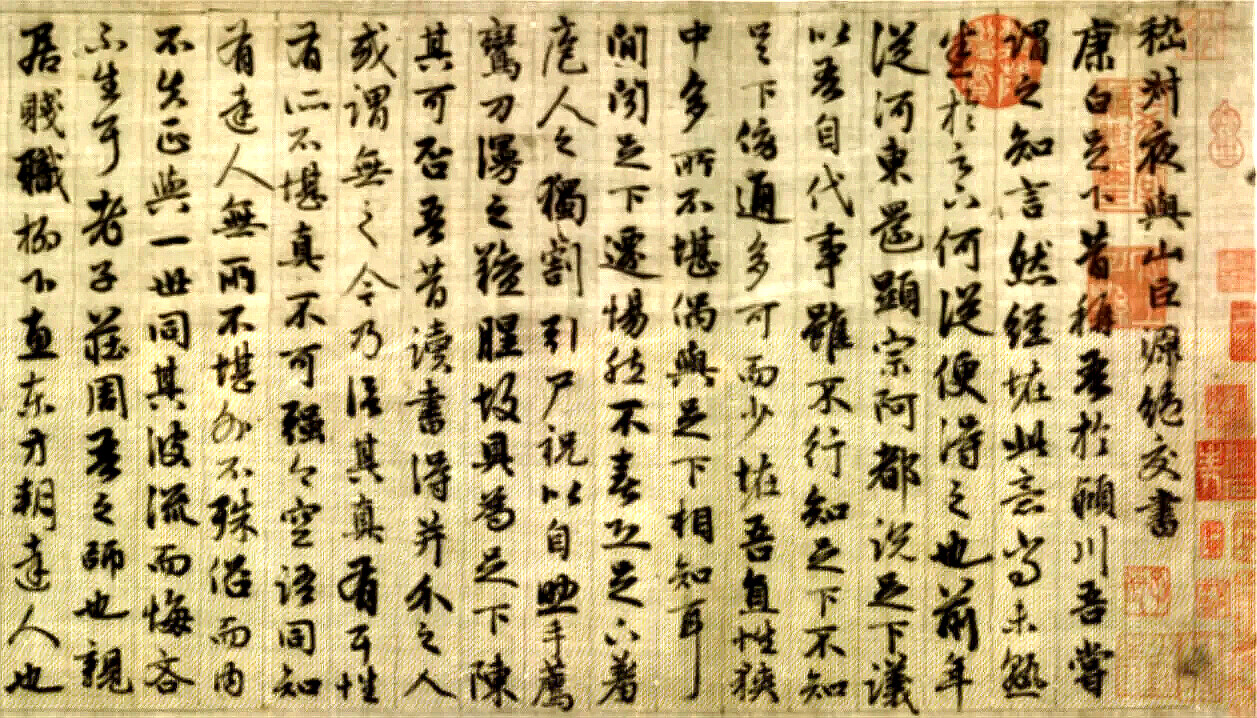 嵇叔夜與山巨源絕交書
康白足下昔稱吾於潁川吾嘗
謂之知言然經恠此意尚未熟
悉於足下何從便得之也前年
從河東還顯宗阿都說足下議
以吾自代事雖不行知足下不知
足下傍通多可而少恠吾直性狹
中多所不堪偶與足下相知耳
間聞足下遷惕然不喜恐足下羞
庖人之獨割引尸祝以自助手薦
鸞刀漫之羶腥故具為足下陳
其可否吾昔讀書得并介之人
或謂無之今乃信其真有耳性
有所不堪真不可強今空語同知
有達人無所不堪外不殊俗而內
不失正與一世同其波流而悔吝
不生耳老子莊周吾之師也親
居賤職柳下惠東方朔達人也